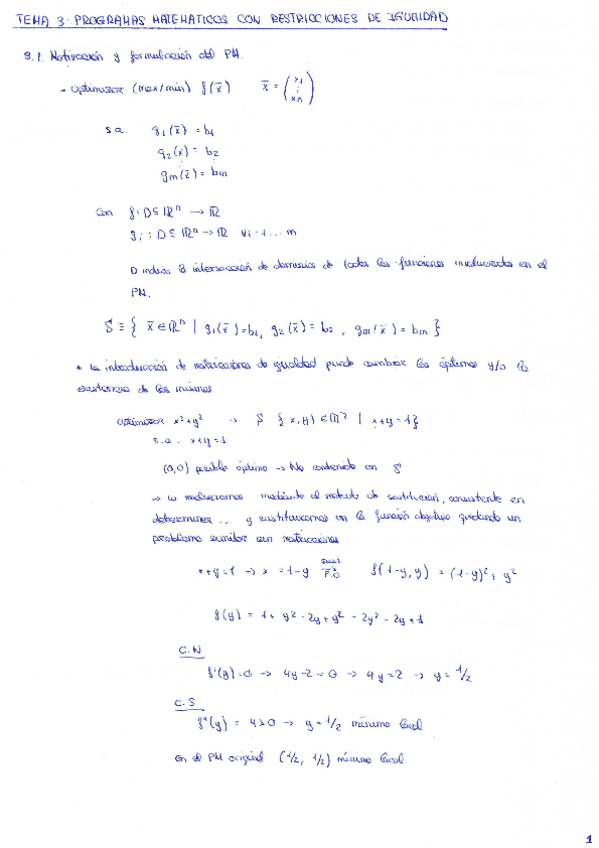 TEMA 3: PROGRAMAS MATEMATICOS CON RESTRICCIONES DE IGUALDAD
3.1. Motivación y formulación del PM.
- Optimizar (max/min) f(x̄) x̄ = (x1 ⋮ xn)
s.a. g1(x̄) = b1
g2(x) = b2
gm(x̄) = bm
Con f: D⊆ℝⁿ → ℝ
gi: D⊆ℝⁿ → ℝ ∀i=1...m
D indica la intersección de dominios de todas las funciones involucradas en el
PM.
S ≡ { x̄ ∈ ℝⁿ | g1(x̄)=b1, g2(x̄)=b2, gm(x̄)=bm }
* la introducción de restricciones de igualdad puede cambiar los óptimos y/o la
existencia de los mismos
optimizar x²+y² → S {x,y) ∈ ℝ² | x+y=1}
s.a. x+y=1
(0,0) posible óptimo → No contenido en S
→ lo resolveremos mediante el método de sustitución, consistente en
determinar .. y sustituimos en la función objetivo quedando un
problema similar sin restricciones
x+y=1 → x = 1-y → F.O f(1-y, y) = (1-y)² + y²
f(y) = 1 + y² - 2y + y² = 2y² - 2y + 1
C.N
f'(y)=0 → 4y-2=0 → 4y=2 → y=1/2
C.S
f''(y) = 4>0 → y=1/2 mínimo local
en el PM original (1/2, 1/2) mínimo local
1